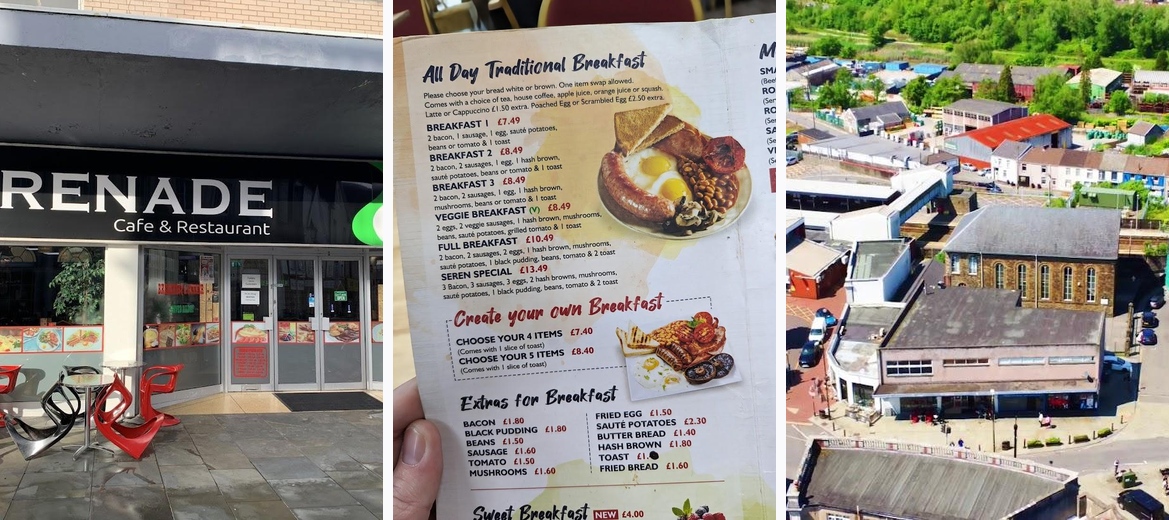 RENADE
Cafe & Restaurant
All Day Traditional Breakfast
Please choose your bread white or brown. One item swap allowed.
Comes with a choice of tea, house coffee, apple juice, orange juice or squash.
Latte or Cappuccino £1.50 extra. Poached Egg or Scrambled Egg £2.50 extra.
BREAKFAST 1 £7.49
2 bacon, 1 sausage, 1 egg, sauté potatoes,
beans or tomato & 1 toast
BREAKFAST 2 £8.49
2 bacon, 2 sausages, 1 egg, 1 hash brown,
sauté potatoes, beans or tomato & 1 toast
BREAKFAST 3 £8.49
2 bacon, 2 sausages, 1 egg, 1 hash brown,
mushrooms, beans or tomato & 1 toast
VEGGIE BREAKFAST (V) £8.49
2 eggs, 2 veggie sausages, 1 hash brown, mushrooms,
beans, sauté potatoes, grilled tomato & 1 toast
FULL BREAKFAST £10.49
2 bacon, 2 sausages, 2 eggs, 1 hash brown, mushrooms,
sauté potatoes, 1 black pudding, beans, tomato & 2 toast
SEREN SPECIAL £13.49
3 Bacon, 3 sausages, 3 eggs, 2 hash browns, mushrooms,
sauté potatoes, 1 black pudding, beans, tomato & 2 toast
Create your own Breakfast
CHOOSE YOUR 4 ITEMS £7.40
(Comes with 1 slice of toast)
CHOOSE YOUR 5 ITEMS £8.40
(Comes with 1 slice of toast)
Extras for Breakfast
BACON £1.80
BLACK PUDDING £1.80
BEANS £1.50
SAUSAGE £1.60
TOMATO £1.50
MUSHROOMS £1.60
FRIED EGG £1.50
SAUTÉ POTATOES £2.30
BUTTER BREAD £1.40
HASH BROWN £1.80
TOAST £1.
FRIED BREAD £1.60
Sweet Breakfast NEW £4.00
M
SMA
(Bee
RO
(Ser
RO
(Ser
SA
(Ser
VE
(Ser